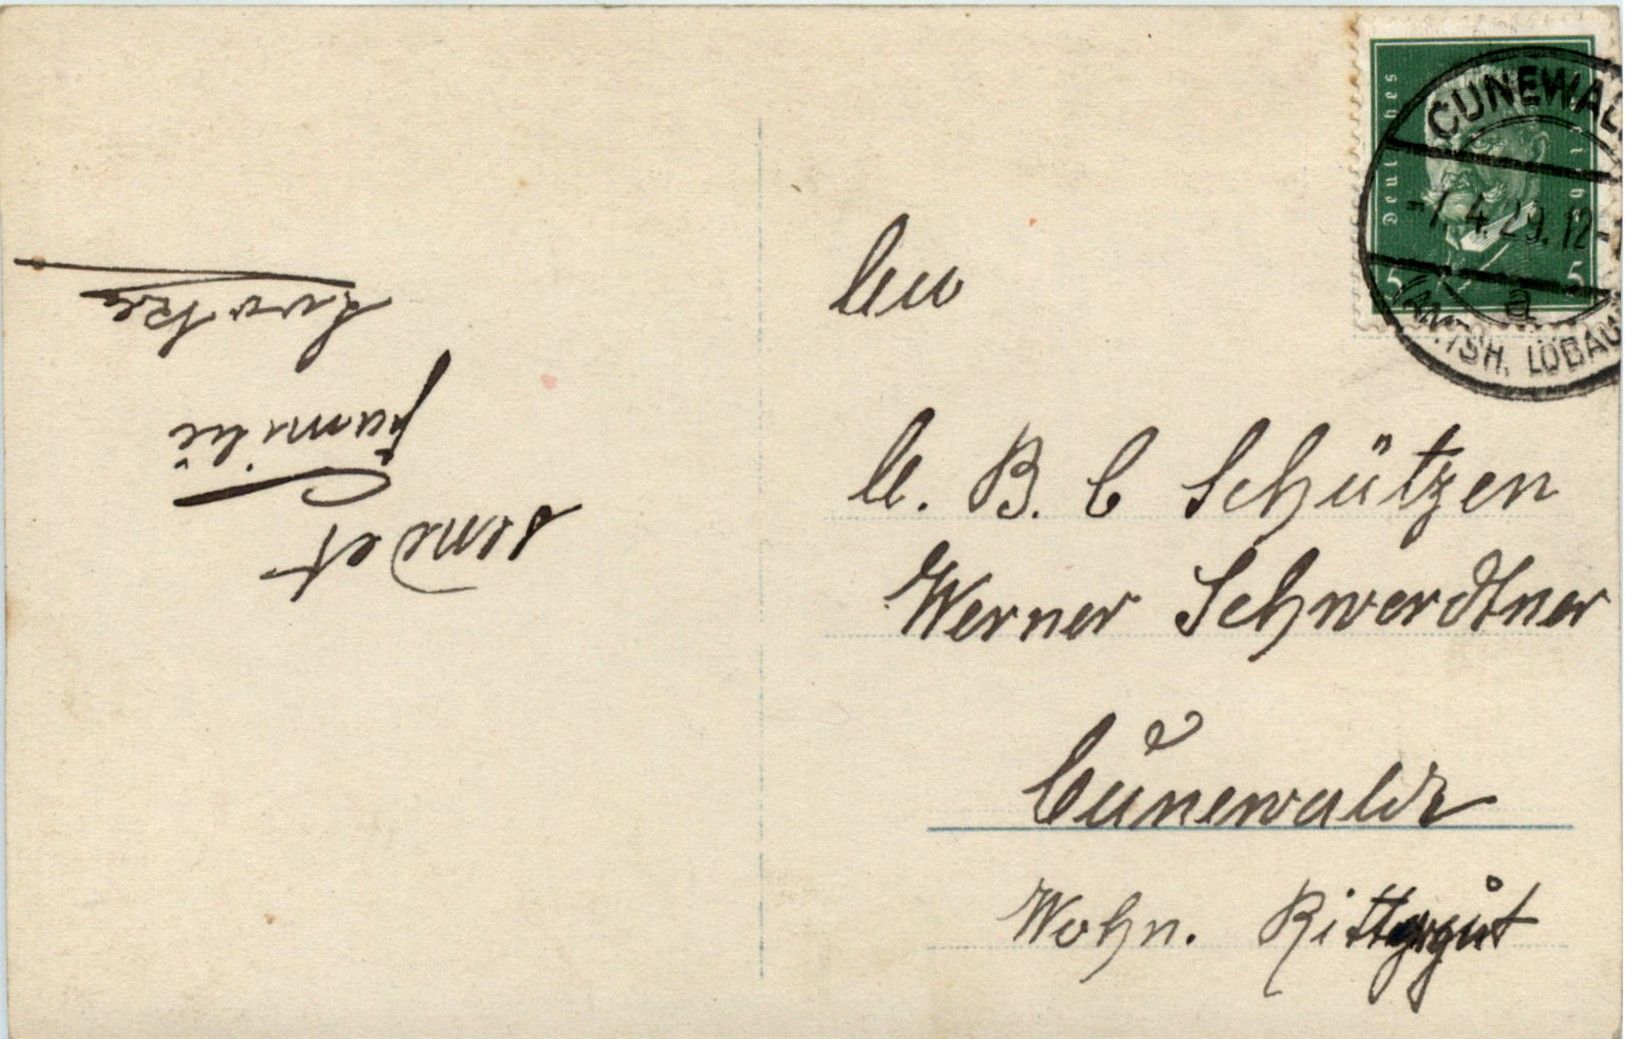 sendet
Familie
An
A. B. C Schützen
Werner Schwerdtner
Cunewalde
Wohn. Rittergut
Deutsches Reich
5 5
CUNEWAL
-1.4.29.12-
a
(AMTSH. LÖBAU